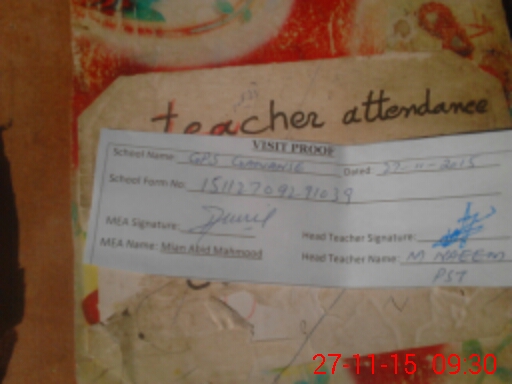 teacher attendance
VISIT PROOF
School Name: GPS Dated: 27-11-2015
School Form No:
MEA Signature: Head Teacher Signature:
MEA Name: Mian Abid Mahmood Head Teacher Name: M NAEEM
PST
27-11-15 09:30